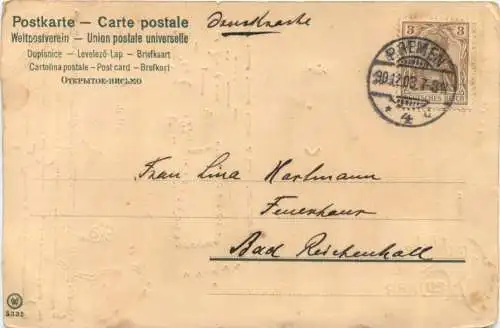 Postkarte – Carte postale
Weltpostverein – Union postale universelle
Dopisnice – Levelező-Lap – Briefkaart
Cartolina postale – Post card – Brefkort
Открытое-письмо
Drucksache
3 3
BREMEN
30.12.03. 7-8N
DEUTSCHES REICH
* 4 d
Frau Lina Hartmann
Feuerhaus
Bad Reichenhall
5335